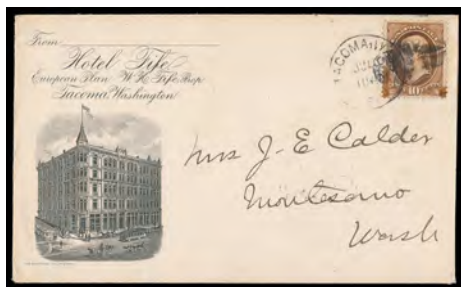 From
Hotel Fife
European Plan W.H. Fife Prop.
Tacoma, Washington
TACOMA
10
Mrs J-E Calder
Montesano
Wash